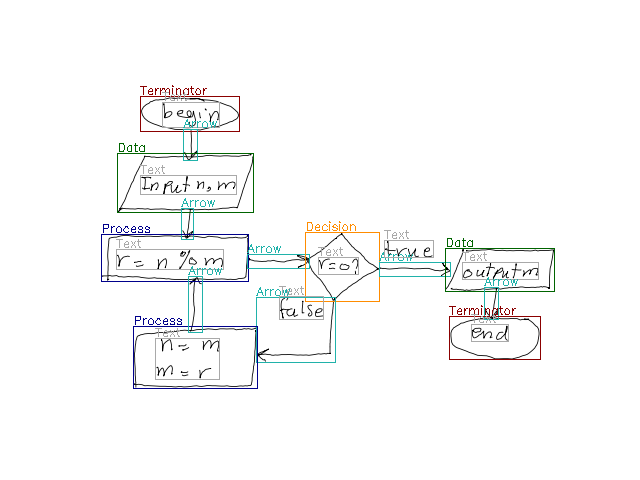 Terminator
Text
begin
Arrow
Data
Text
Input n, m
Arrow
Process
Text
r = n % m
Arrow
Arrow
Decision
Text
r=0?
Text
true
Arrow
Data
Text
output m
Arrow
Terminator
Text
end
Arrow
Text
false
Process
Text
n = m
m = r